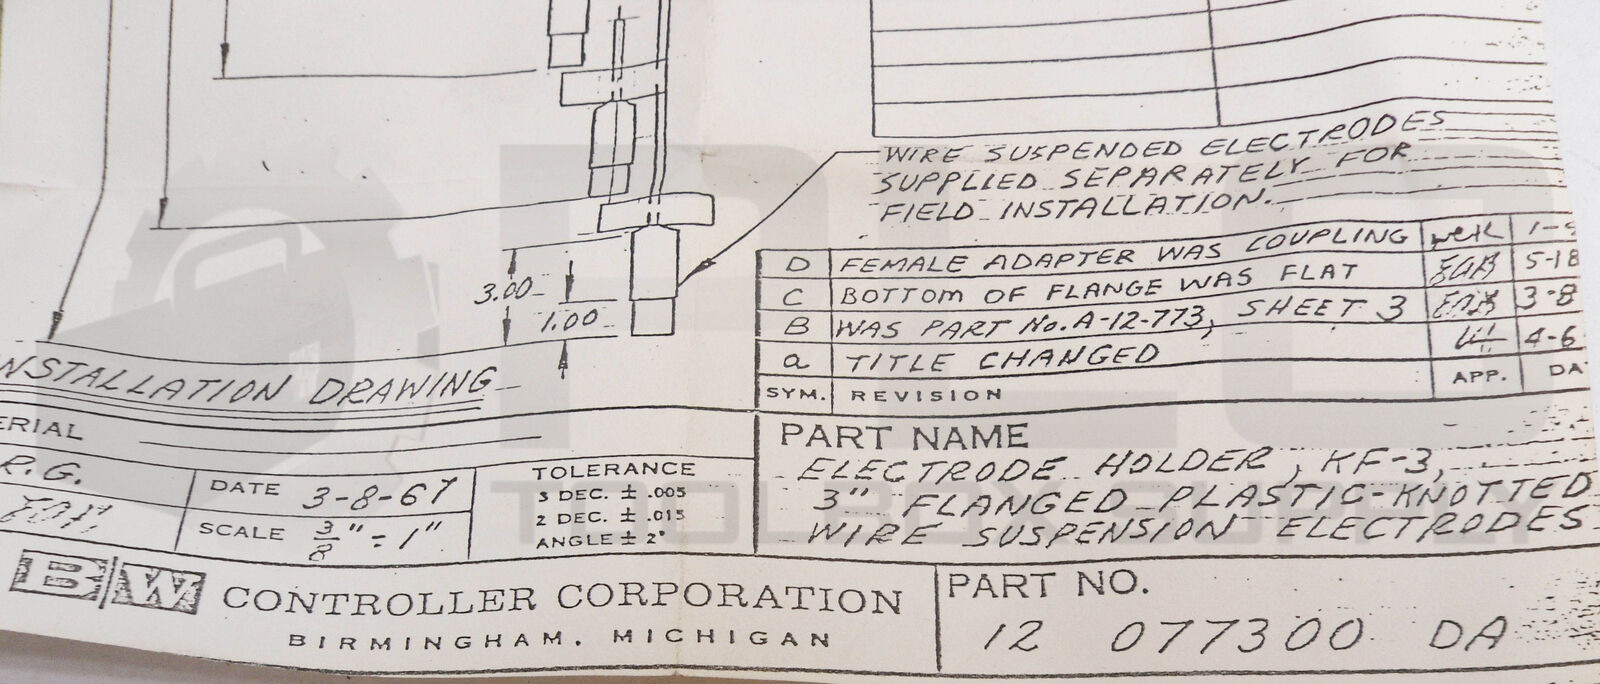 WIRE SUSPENDED ELECTRODES
SUPPLIED SEPARATELY FOR
FIELD INSTALLATION.
3.00
1.00
D FEMALE ADAPTER WAS COUPLING WCK
C BOTTOM OF FLANGE WAS FLAT 5-18
B WAS PART No. A-12-773, SHEET 3 3-8
a TITLE CHANGED 4-6
SYM. REVISION APP. DA
NSTALLATION DRAWING
ERIAL
R.G.
DATE 3-8-67
SCALE 3/8" = 1"
TOLERANCE
3 DEC. ± .005
2 DEC. ± .015
ANGLE ± 2°
PART NAME
ELECTRODE HOLDER, KF-3,
3" FLANGED PLASTIC-KNOTTED
WIRE SUSPENSION ELECTRODES
B/W CONTROLLER CORPORATION
BIRMINGHAM, MICHIGAN
PART NO.
12 077300 DA
TOOLBOX SUPPLY